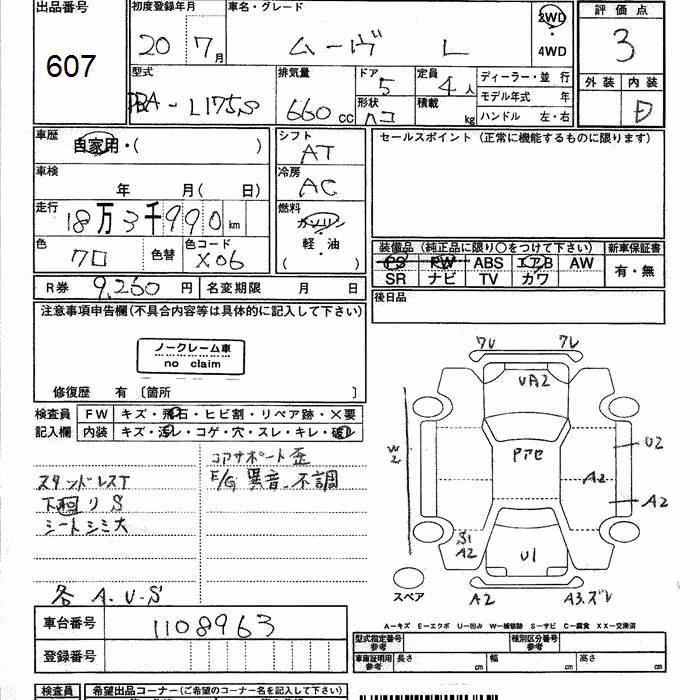 出品番号
607
初度登録年月
20 7月
車名・グレード
ムーヴ L
2WD
・
4WD
評価点
3
外装 内装
D
型式
DBA-L175S
排気量
660 cc
ドア
5
形状
ハコ
定員
4人
積載
kg
ディーラー・並行
モデル年式 年
ハンドル 左・右
車歴
自家用・( )
車検
年 月( 日)
走行
18万3千990km
色
クロ
色替
色コード
X06
シフト
AT
冷房
AC
燃料
ガソリン
軽・油
( )
セールスポイント(正常に機能するものに限ります)
装備品(純正品に限り○をつけて下さい)
新車保証書
PS PW ABS エアB AW
SR ナビ TV カワ
有・無
R券 9,260円
名変期限 月 日
後日品
注意事項申告欄(不具合内容等は具体的に記入して下さい)
ノークレーム車
no claim
修復歴 有〔箇所 〕
検査員
記入欄
FW キズ・飛石・ヒビ割・リペア跡・×要
内装 キズ・汚レ・コゲ・穴・スレ・キレ・破レ
コアサポート歪
スタンドレスT
E/G 異音、不調
下回リS
シートシミ大
各 A.U.S
車台番号
1108963
登録番号
7U 7L
UA2
W2
Pre
U2
A2
A2
S1
A2
U1
スペア
A2
A3.ズレ
A―キズ E―エクボ U―凹み W―補修跡 S―サビ C―腐食 XX―交換済
型式指定番号
参考
種別区分番号
参考
車庫証明用
参考
長さ cm
幅 cm
高さ cm
検査員
希望出品コーナー(ご希望のコーナー名を記入して下さい)